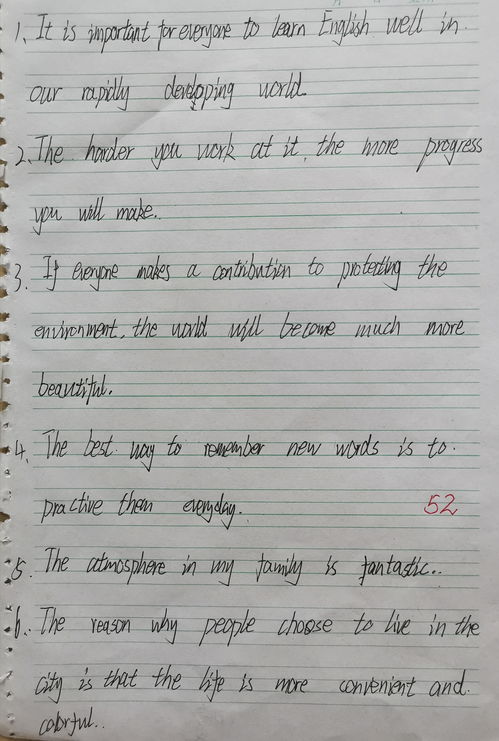 1. It is important for everyone to learn English well in
our rapidly developing world.
2. The harder you work at it, the more progress
you will make.
3. If everyone makes a contribution to protecting the
environment, the world will become much more
beautiful.
4. The best way to remember new words is to
practive them everyday.
52
5. The atmosphere in my family is fantastic..
6. The reason why people choose to live in the
city is that the life is more convenient and
colorful..